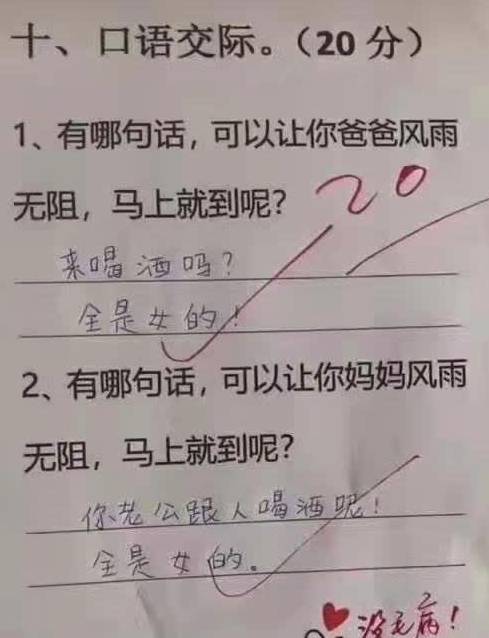 十、口语交际。（20 分）
1、有哪句话，可以让你爸爸风雨
无阻，马上就到呢？
20
来喝酒吗？
全是女的！
2、有哪句话，可以让你妈妈风雨
无阻，马上就到呢？
你老公跟人喝酒呢！
全是女的。
没毛病！